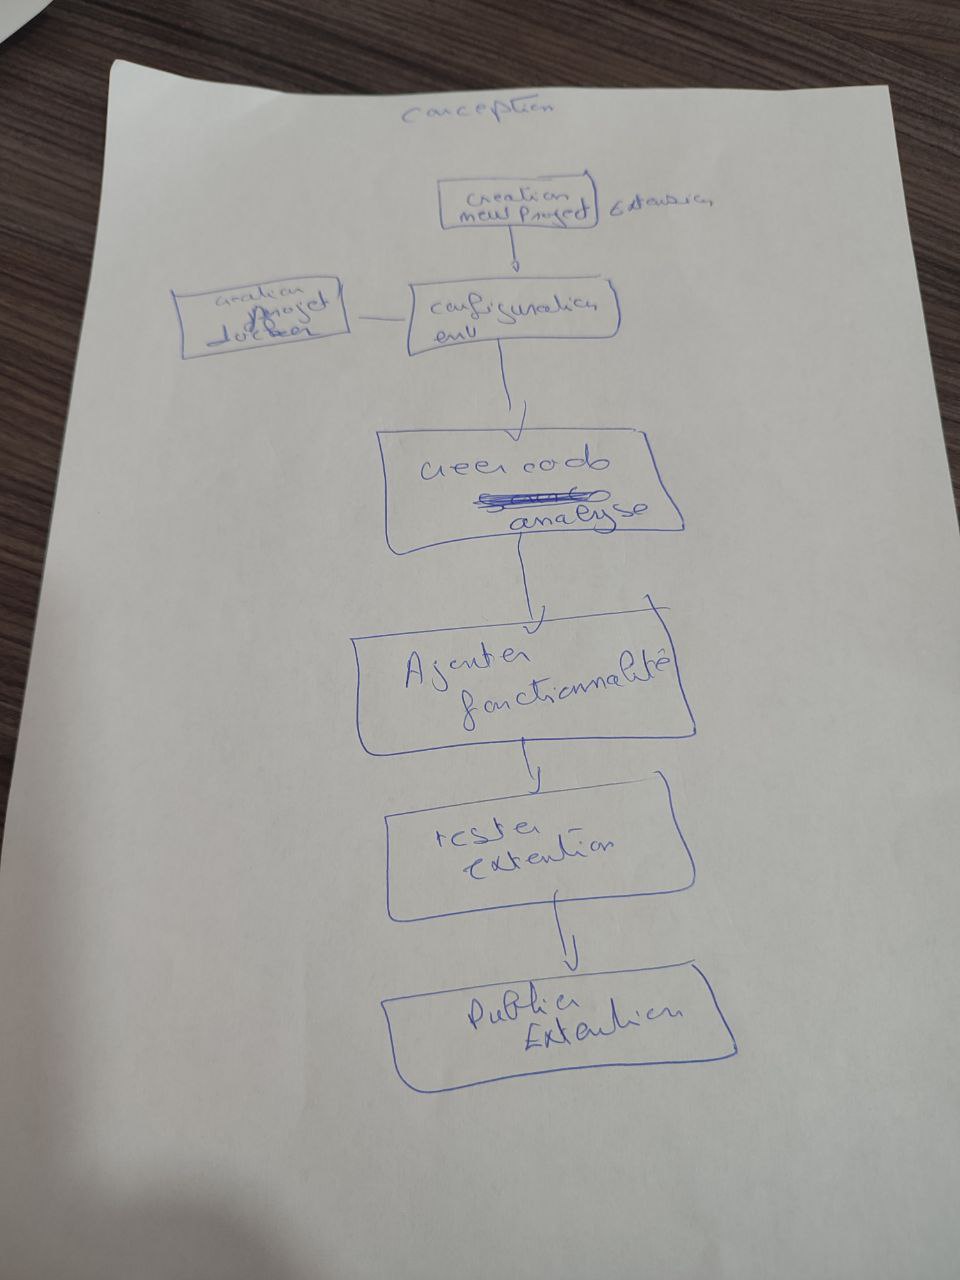 conception
creation
new Project
Extension
creation
projet
docker
configuration
env
creer code
analyse
Ajouter
fonctionnalité
tester
extention
Publier
Extention